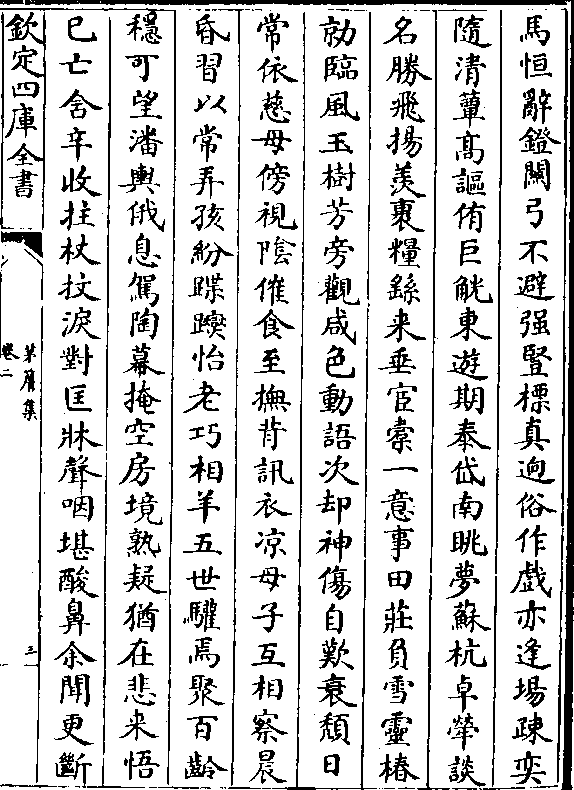 馬恒辭鐙闗弓不避强豎標真逈俗作戲亦逢場疎奕
隨清蕇髙謳侑巨觥東遊期泰岱南眺夢蘇杭卓犖談
名勝飛揚羨裹糧繇来垂宦槖一意事田莊負雪靈椿
勍臨風玉樹芳旁觀咸色動語次却神傷自歎衰頽日
常依慈母傍視陰催食至撫背訊衣凉母子互相察晨
昏習以常弄孩紛蹀躞怡老巧相羊五世驩焉聚百齡
穩可望潘輿俄息駕陶幕掩空房境熟疑猶在悲来悟
已亡舍辛收拄杖抆淚對匡牀聲咽堪酸鼻余聞更斷
欽定四庫全書
茅簷集
卷二
三